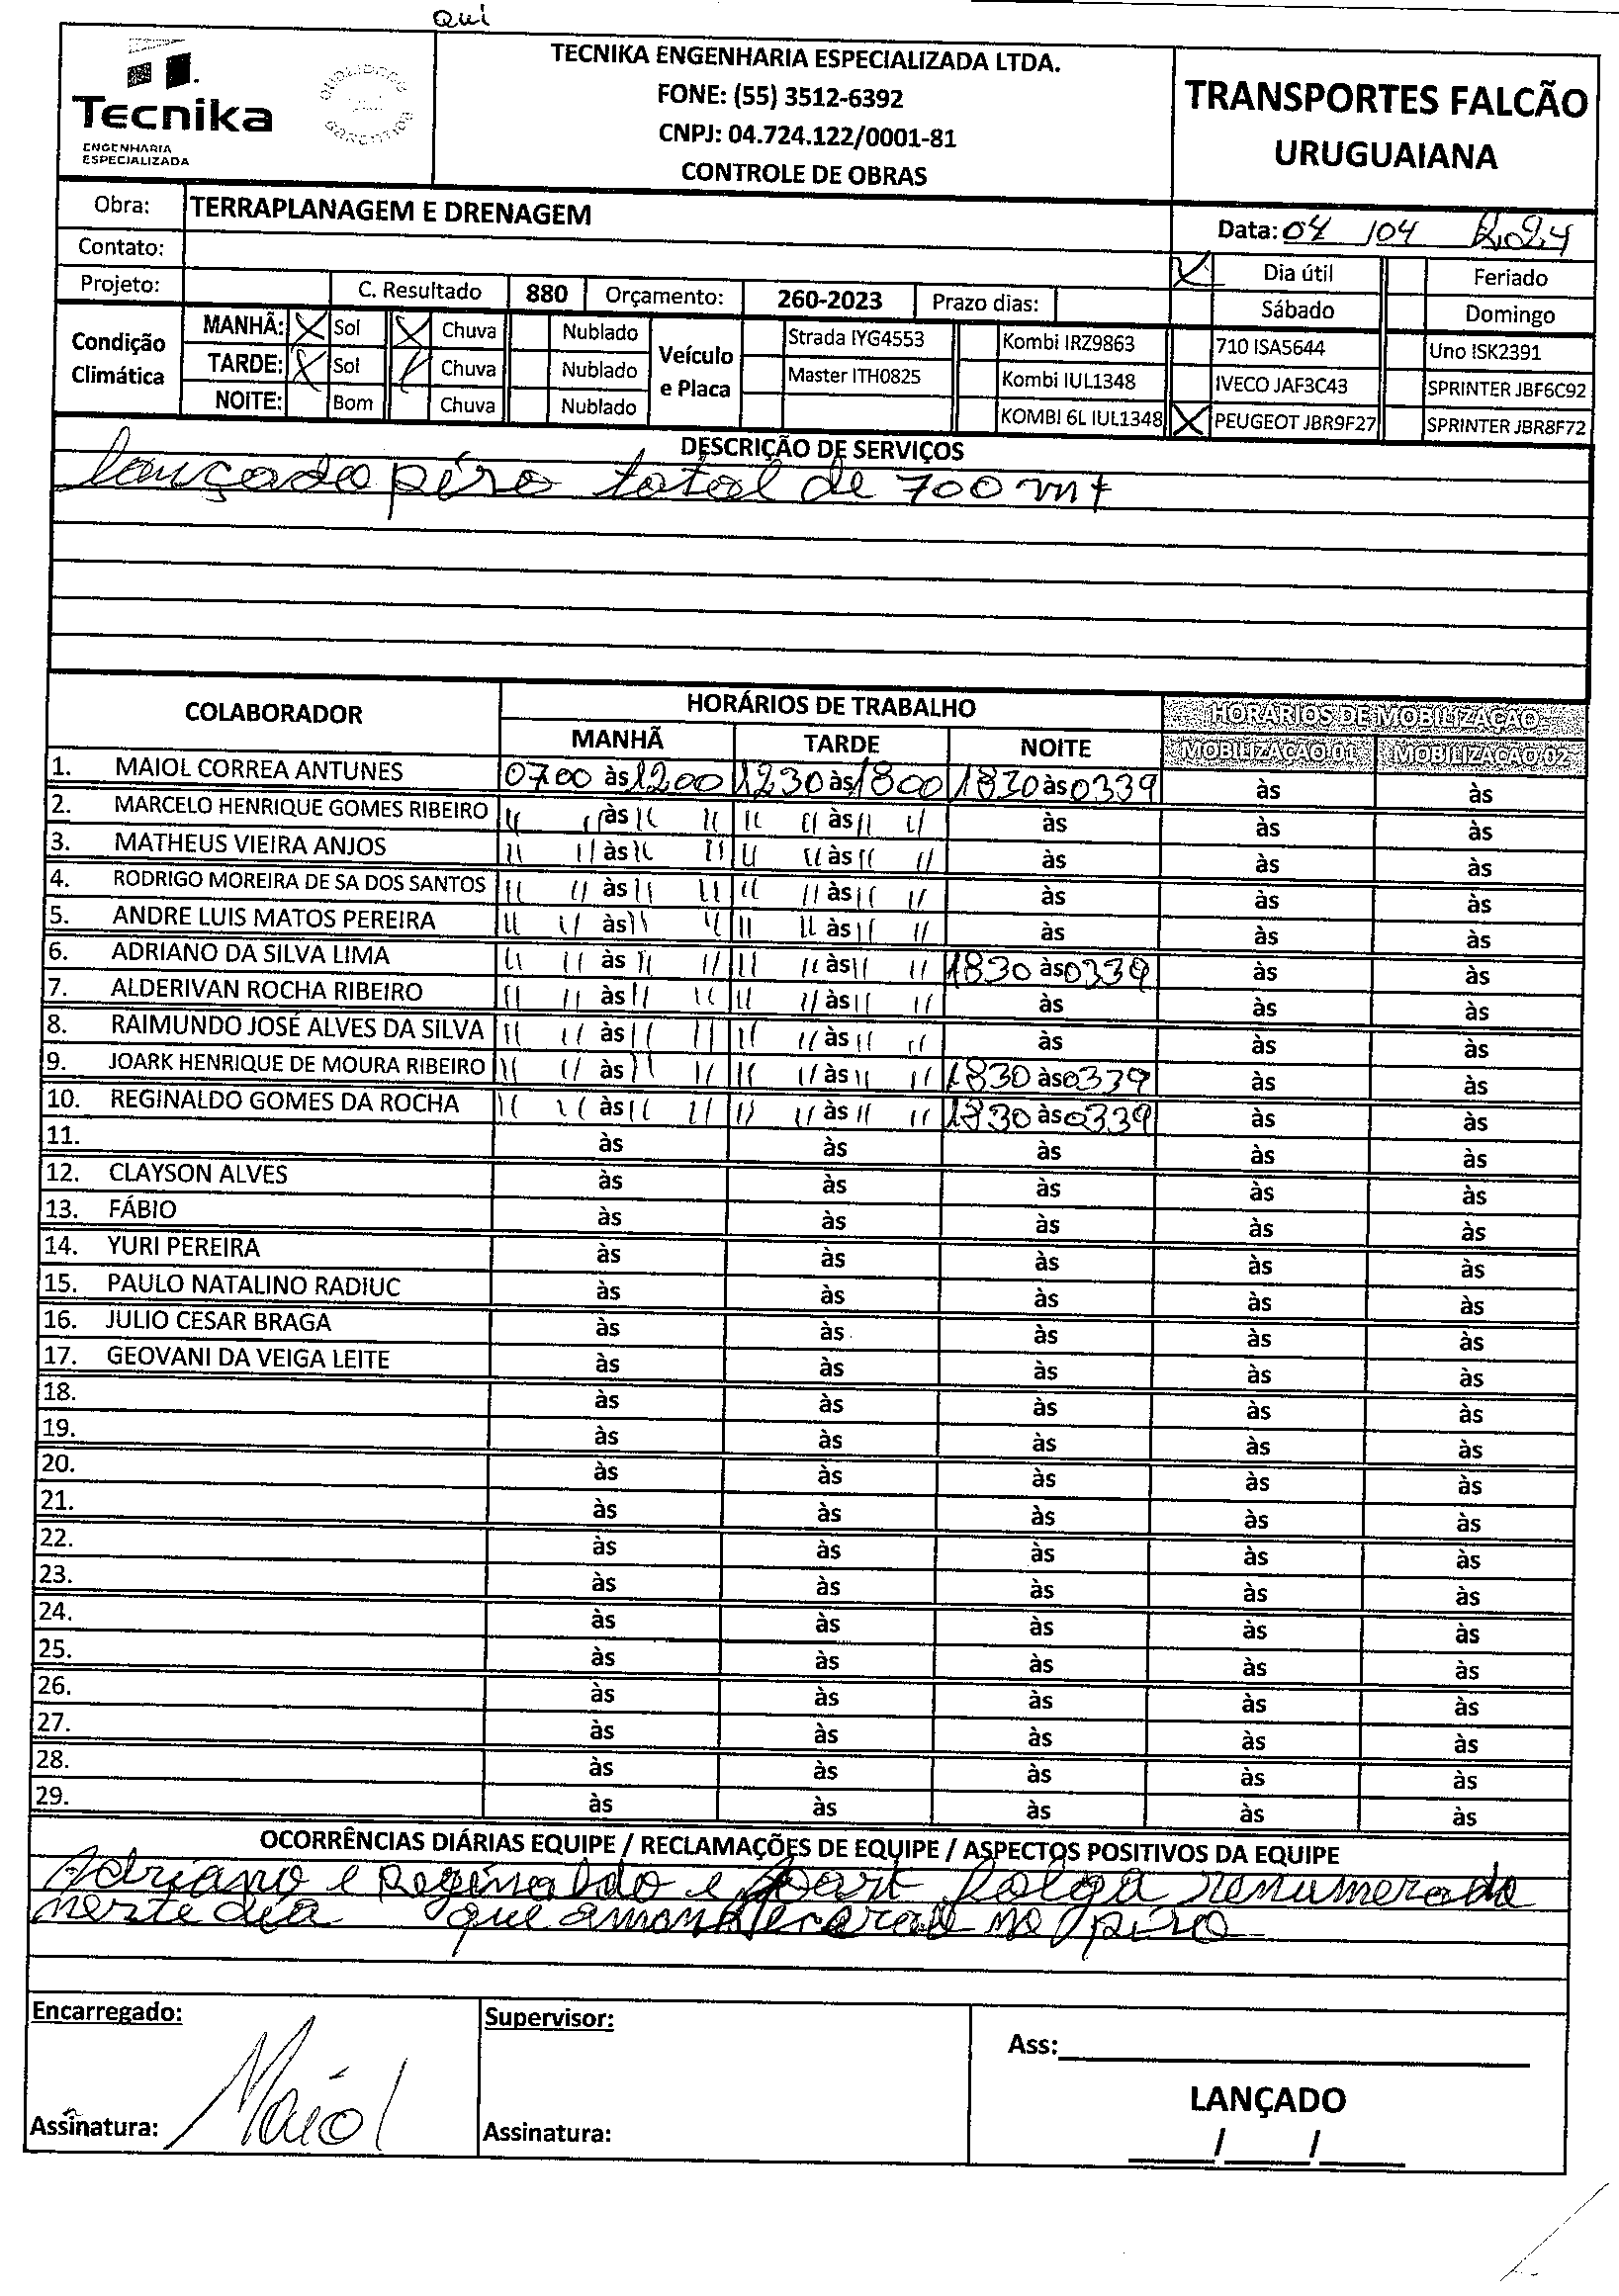 Qui
Tecnika
ENGENHARIA
ESPECIALIZADA
TECNIKA ENGENHARIA ESPECIALIZADA LTDA.
FONE: (55) 3512-6392
CNPJ: 04.724.122/0001-81
CONTROLE DE OBRAS
TRANSPORTES FALCÃO
URUGUAIANA
Obra: TERRAPLANAGEM E DRENAGEM
Data: 04 /04 2024
Contato:
X Dia útil Feriado
Projeto: C. Resultado 880 Orçamento: 260-2023 Prazo dias:
Sábado Domingo
Condição Climática
MANHÃ: X Sol X Chuva Nublado
TARDE: X Sol Chuva Nublado
NOITE: Bom Chuva Nublado
Veículo e Placa
Strada IYG4553 Kombi IRZ9863 710 ISA5644 Uno ISK2391
Master ITH0825 Kombi IUL1348 IVECO JAF3C43 SPRINTER JBF6C92
KOMBI 6L IUL1348 X PEUGEOT JBR9F27 SPRINTER JBR8F72
DESCRIÇÃO DE SERVIÇOS
lançado píso total de 700 mt
COLABORADOR HORÁRIOS DE TRABALHO HORÁRIOS DE MOBILIZAÇÃO
MANHÃ TARDE NOITE MOBILIZAÇAO 01 MOBILIZAÇAO 02
1. MAIOL CORREA ANTUNES 0700 às 1200 1230 às 1800 1830 às 0339 às às
2. MARCELO HENRIQUE GOMES RIBEIRO " " às " " " " às " " às às às
3. MATHEUS VIEIRA ANJOS " " às " " " " às " " às às às
4. RODRIGO MOREIRA DE SA DOS SANTOS " " às " " " " às " " às às às
5. ANDRE LUIS MATOS PEREIRA " " às " " " " às " " às às às
6. ADRIANO DA SILVA LIMA " " às " " " " às " " 1830 às 0339 às às
7. ALDERIVAN ROCHA RIBEIRO " " às " " " " às " " às às às
8. RAIMUNDO JOSÉ ALVES DA SILVA " " às " " " " às " " às às às
9. JOARK HENRIQUE DE MOURA RIBEIRO " " às " " " " às " " 1830 às 0339 às às
10. REGINALDO GOMES DA ROCHA " " às " " " " às " " 1830 às 0339 às às
11. às às às às às
12. CLAYSON ALVES às às às às às
13. FÁBIO às às às às às
14. YURI PEREIRA às às às às às
15. PAULO NATALINO RADIUC às às às às às
16. JULIO CESAR BRAGA às às às às às
17. GEOVANI DA VEIGA LEITE às às às às às
18. às às às às às
19. às às às às às
20. às às às às às
21. às às às às às
22. às às às às às
23. às às às às às
24. às às às às às
25. às às às às às
26. às às às às às
27. às às às às às
28. às às às às às
29. às às às às às
OCORRÊNCIAS DIÁRIAS EQUIPE / RECLAMAÇÕES DE EQUIPE / ASPECTOS POSITIVOS DA EQUIPE
Adriano e Reginaldo e Joark folga renumerada
neste dia que amanhecerao no píso
Encarregado:
Supervisor:
Ass:
LANÇADO
Assinatura: Maiol
Assinatura:
/ /